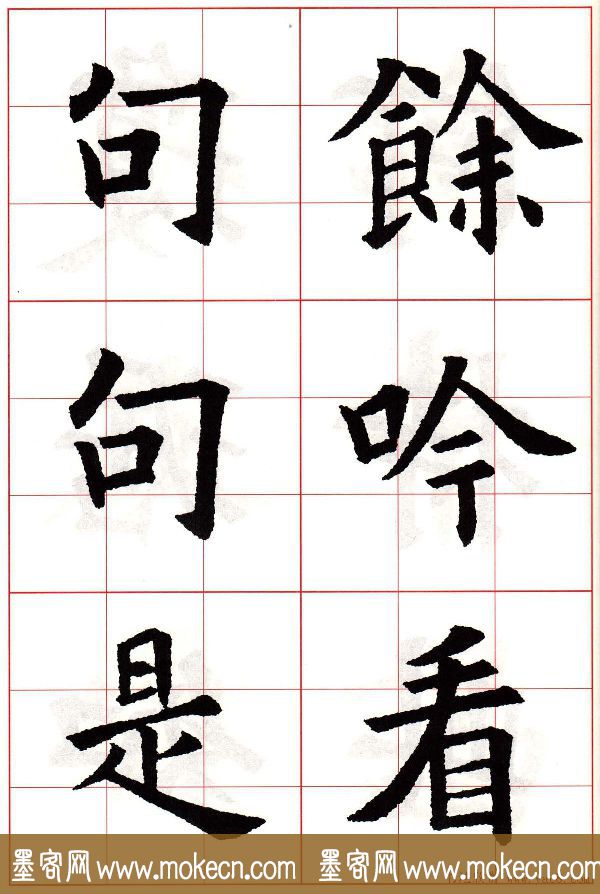 餘吟看
句句是
墨客网 www.mokecn.com 墨客网 www.mokecn.com